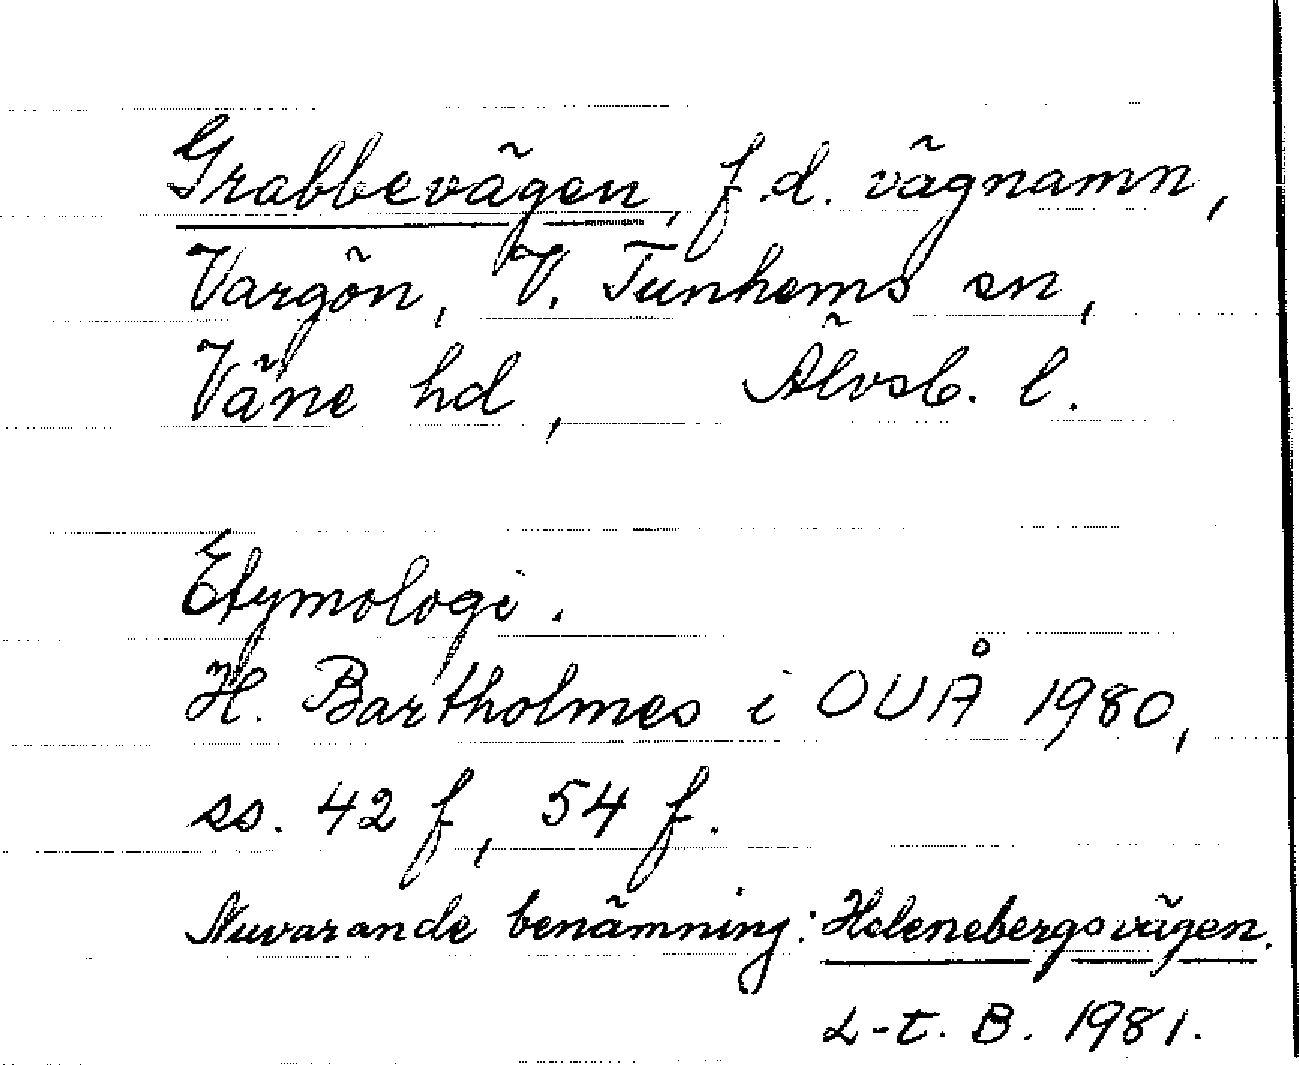 Grabbevägen, f.d. vägnamn,
Vargön, V. Tunhems sn,
Väne hd, Älvsb. l.
Etymologi.
H. Bartholmes i OUÅ 1980,
ss. 42 f, 54 f.
Nuvarande benämning: Helenebergsvägen.
L-t. B. 1981.